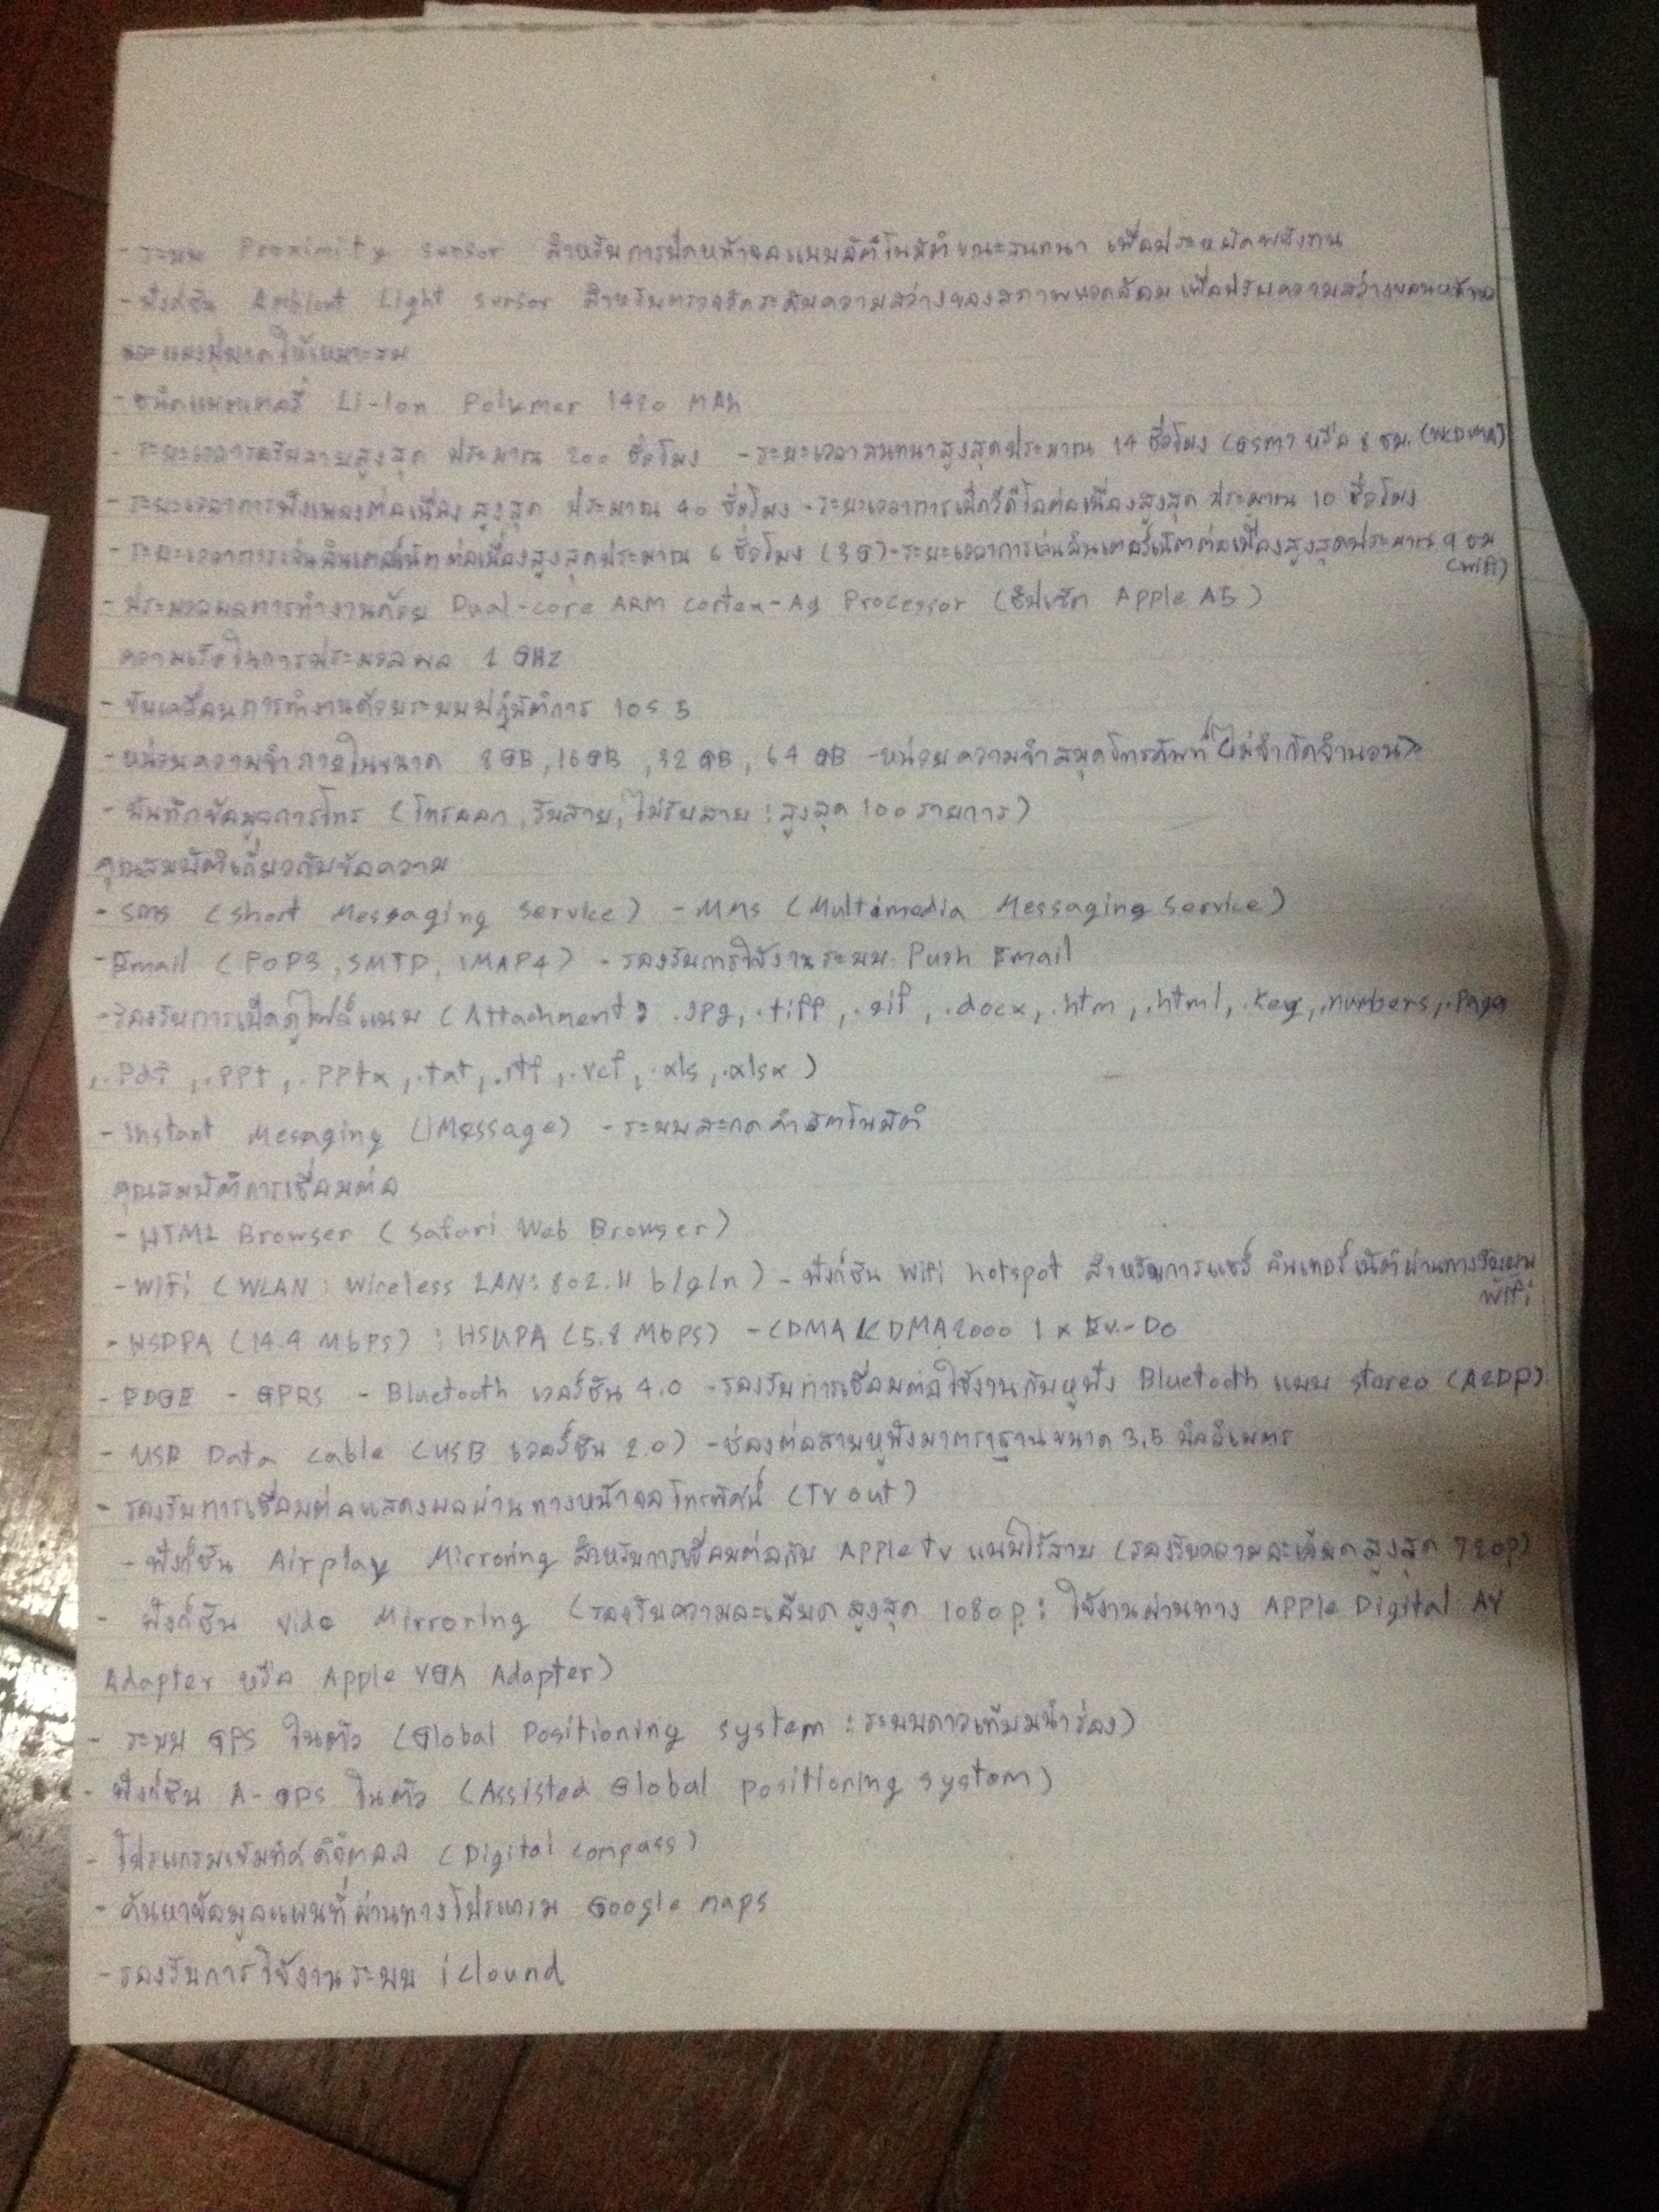 - ระบบ Proximity Sensor สำหรับการปิดหน้าจอแบบอัตโนมัติขณะสนทนา เพื่อประหยัดพลังงาน
- ฟังก์ชัน Ambient Light Sensor สำหรับตรวจวัดระดับความสว่างของสภาพแวดล้อม เพื่อปรับความสว่างของหน้าจอ
และแผงปุ่มกดให้เหมาะสม
- ชนิดแบตเตอรี่ Li-Ion Polymer 1420 MAh
- ระยะเวลารอรับสายสูงสุด ประมาณ 200 ชั่วโมง - ระยะเวลาสนทนาสูงสุดประมาณ 14 ชั่วโมง (GSM) หรือ 8 ชม. (WCDMA)
- ระยะเวลาการฟังเพลงต่อเนื่องสูงสุด ประมาณ 40 ชั่วโมง - ระยะเวลาการเปิดวีดีโอต่อเนื่องสูงสุด ประมาณ 10 ชั่วโมง
- ระยะเวลาการเล่นอินเตอร์เน็ตต่อเนื่องสูงสุดประมาณ 6 ชั่วโมง (3G) - ระยะเวลาการเล่นอินเตอร์เน็ตต่อเนื่องสูงสุดประมาณ 9 ชม
(Wifi)
- ประมวลผลการทำงานด้วย Dual-core ARM Cortex-A9 Processor (ชิปเซ็ต Apple A5)
ความเร็วในการประมวลผล 1 GHz
- ขับเคลื่อนการทำงานด้วยระบบปฏิบัติการ IOS 5
- หน่วยความจำภายในขนาด 8GB, 16GB, 32GB, 64 GB - หน่วยความจำสมุดโทรศัพท์ (ไม่จำกัดจำนวน)
- บันทึกข้อมูลการโทร (โทรออก, รับสาย, ไม่รับสาย : สูงสุด 100 รายการ)
คุณสมบัติเกี่ยวกับข้อความ
- SMS (Short Messaging Service) - MMS (Multimedia Messaging Service)
- Email (POP3, SMTP, IMAP4) - รองรับการใช้งานระบบ Push Email
- รองรับการเปิดดูไฟล์แนบ (Attachment : .jpg, .tiff, .gif, .docx, .htm, .html, .key, .numbers, .page
, .Pdf, .PPt, .PPtx, .txt, .rtf, .vcf, .xls, .xlsx)
- Instant Mesaging (iMessage) - ระบบสะกดคำอัตโนมัติ
คุณสมบัติการเชื่อมต่อ
- HTML Browser (Safari Web Browser)
- Wifi (WLAN : Wireless LAN: 802.11 b/g/n) - ฟังก์ชัน Wifi hotspot สำหรับการแชร์ อินเทอร์เน็ตผ่านทางระบบ
Wifi
- HSDPA (14.4 MbPS) : HSUPA (5.8 MbPS) - CDMA (CDMA2000 1x Ev.-DO
- EDGE - GPRS - Bluetooth เวอร์ชัน 4.0 - รองรับการเชื่อมต่อใช้งานกับหูฟัง Bluetooth แบบ Stereo (A2DP)
- USB Data Cable (USB เวอร์ชัน 2.0) - ช่องต่อสายหูฟังมาตรฐานขนาด 3.5 มิลลิเมตร
- รองรับการเชื่อมต่อแสดงผลผ่านทางหน้าจอโทรทัศน์ (TV out)
- ฟังก์ชัน Airplay Mirroring สำหรับการเชื่อมต่อกับ Apple tv แบบไร้สาย (รองรับความละเอียดสูงสุด 720p)
- ฟังก์ชัน Vido Mirroring (รองรับความละเอียดสูงสุด 1080p : ใช้งานผ่านทาง APPle Digital AV
Adapter หรือ Apple VGA Adapter)
- ระบบ GPS ในตัว (Global Positioning System : ระบบดาวเทียมนำร่อง)
- ฟังก์ชัน A-GPS ในตัว (Assisted Global positioning system)
- โปรแกรมเข็มทิศดิจิตอล (Digital Compass)
- ค้นหาข้อมูลแผนที่ผ่านทางโปรแกรม Google maps
- รองรับการใช้งานระบบ iclound